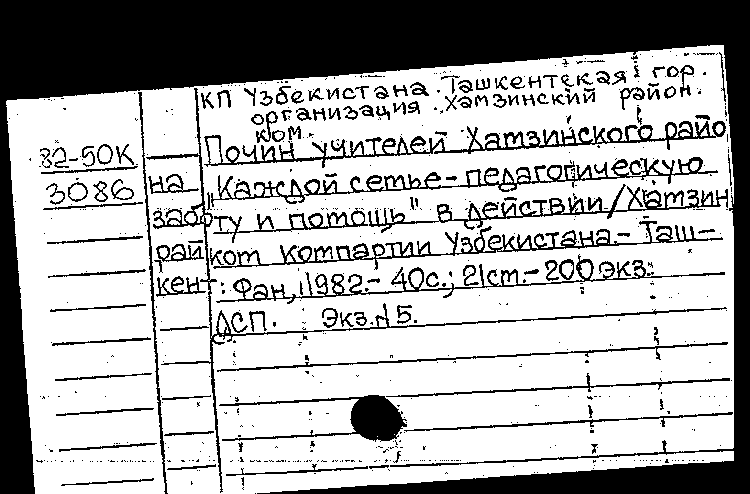 КП Узбекистана. Ташкентская гор.
организация. Хамзинский район.
ком.
82-50К
3086
Почин учителей Хамзинского райо
на "Каждой семье - педагогическую
заботу и помощь" в действии / Хамзин
райком компартии Узбекистана. - Таш-
кент: Фан, 1982. - 40с.; 21см. - 200 экз.
ДСП. Экз. N 5.